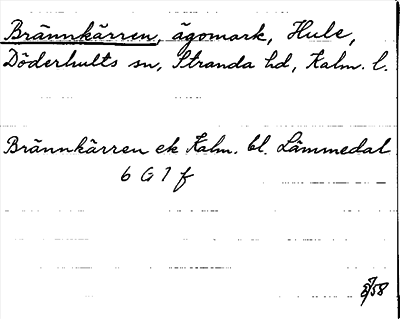 Brännkärren, ägomark, Hule,
Döderhults sn, Stranda hd, Kalm. l.
Brännkärren ek Kalm. bl. Lämmedal
6 G 7 f